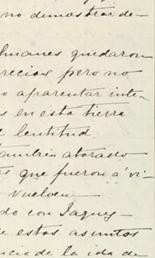 no demostrar de-
lmanes quedaron
recias pero no
o aparentar inte-
s en esta tierra
lentitud.
también atorado
es que fueron a vi-
vuelven
do con Jaques-
e estos asuntos
ncia de la ida de